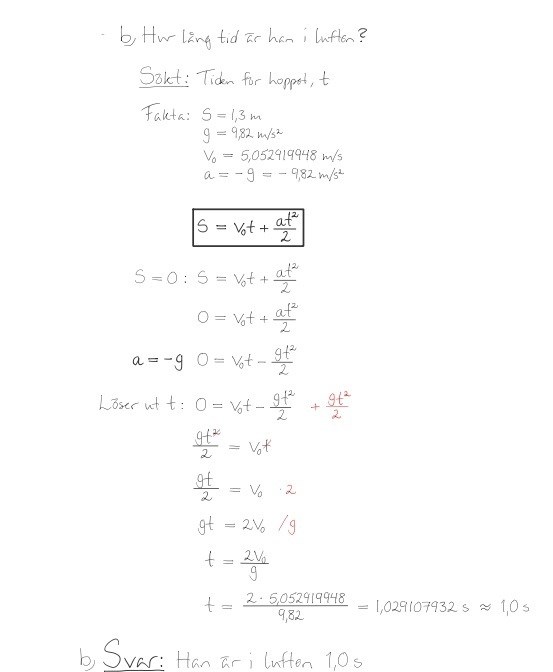 b, Hur lång tid är han i luften?
Sökt: Tiden för hoppet, t
Fakta: S = 1,3 m
g = 9,82 m/s²
V₀ = 5,052919948 m/s
a = -g = -9,82 m/s²
S = V₀t + at²/2
S=0: S = V₀t + at²/2
0 = V₀t + at²/2
a = -g 0 = V₀t - gt²/2
Löser ut t: 0 = V₀t - gt²/2 + gt²/2
gt²/2 = V₀t
gt/2 = V₀ ·2
gt = 2V₀ /g
t = 2V₀/g
t = 2·5,052919948/9,82 = 1,029107932 s ≈ 1,0 s
b, Svar: Han är i luften 1,0 s